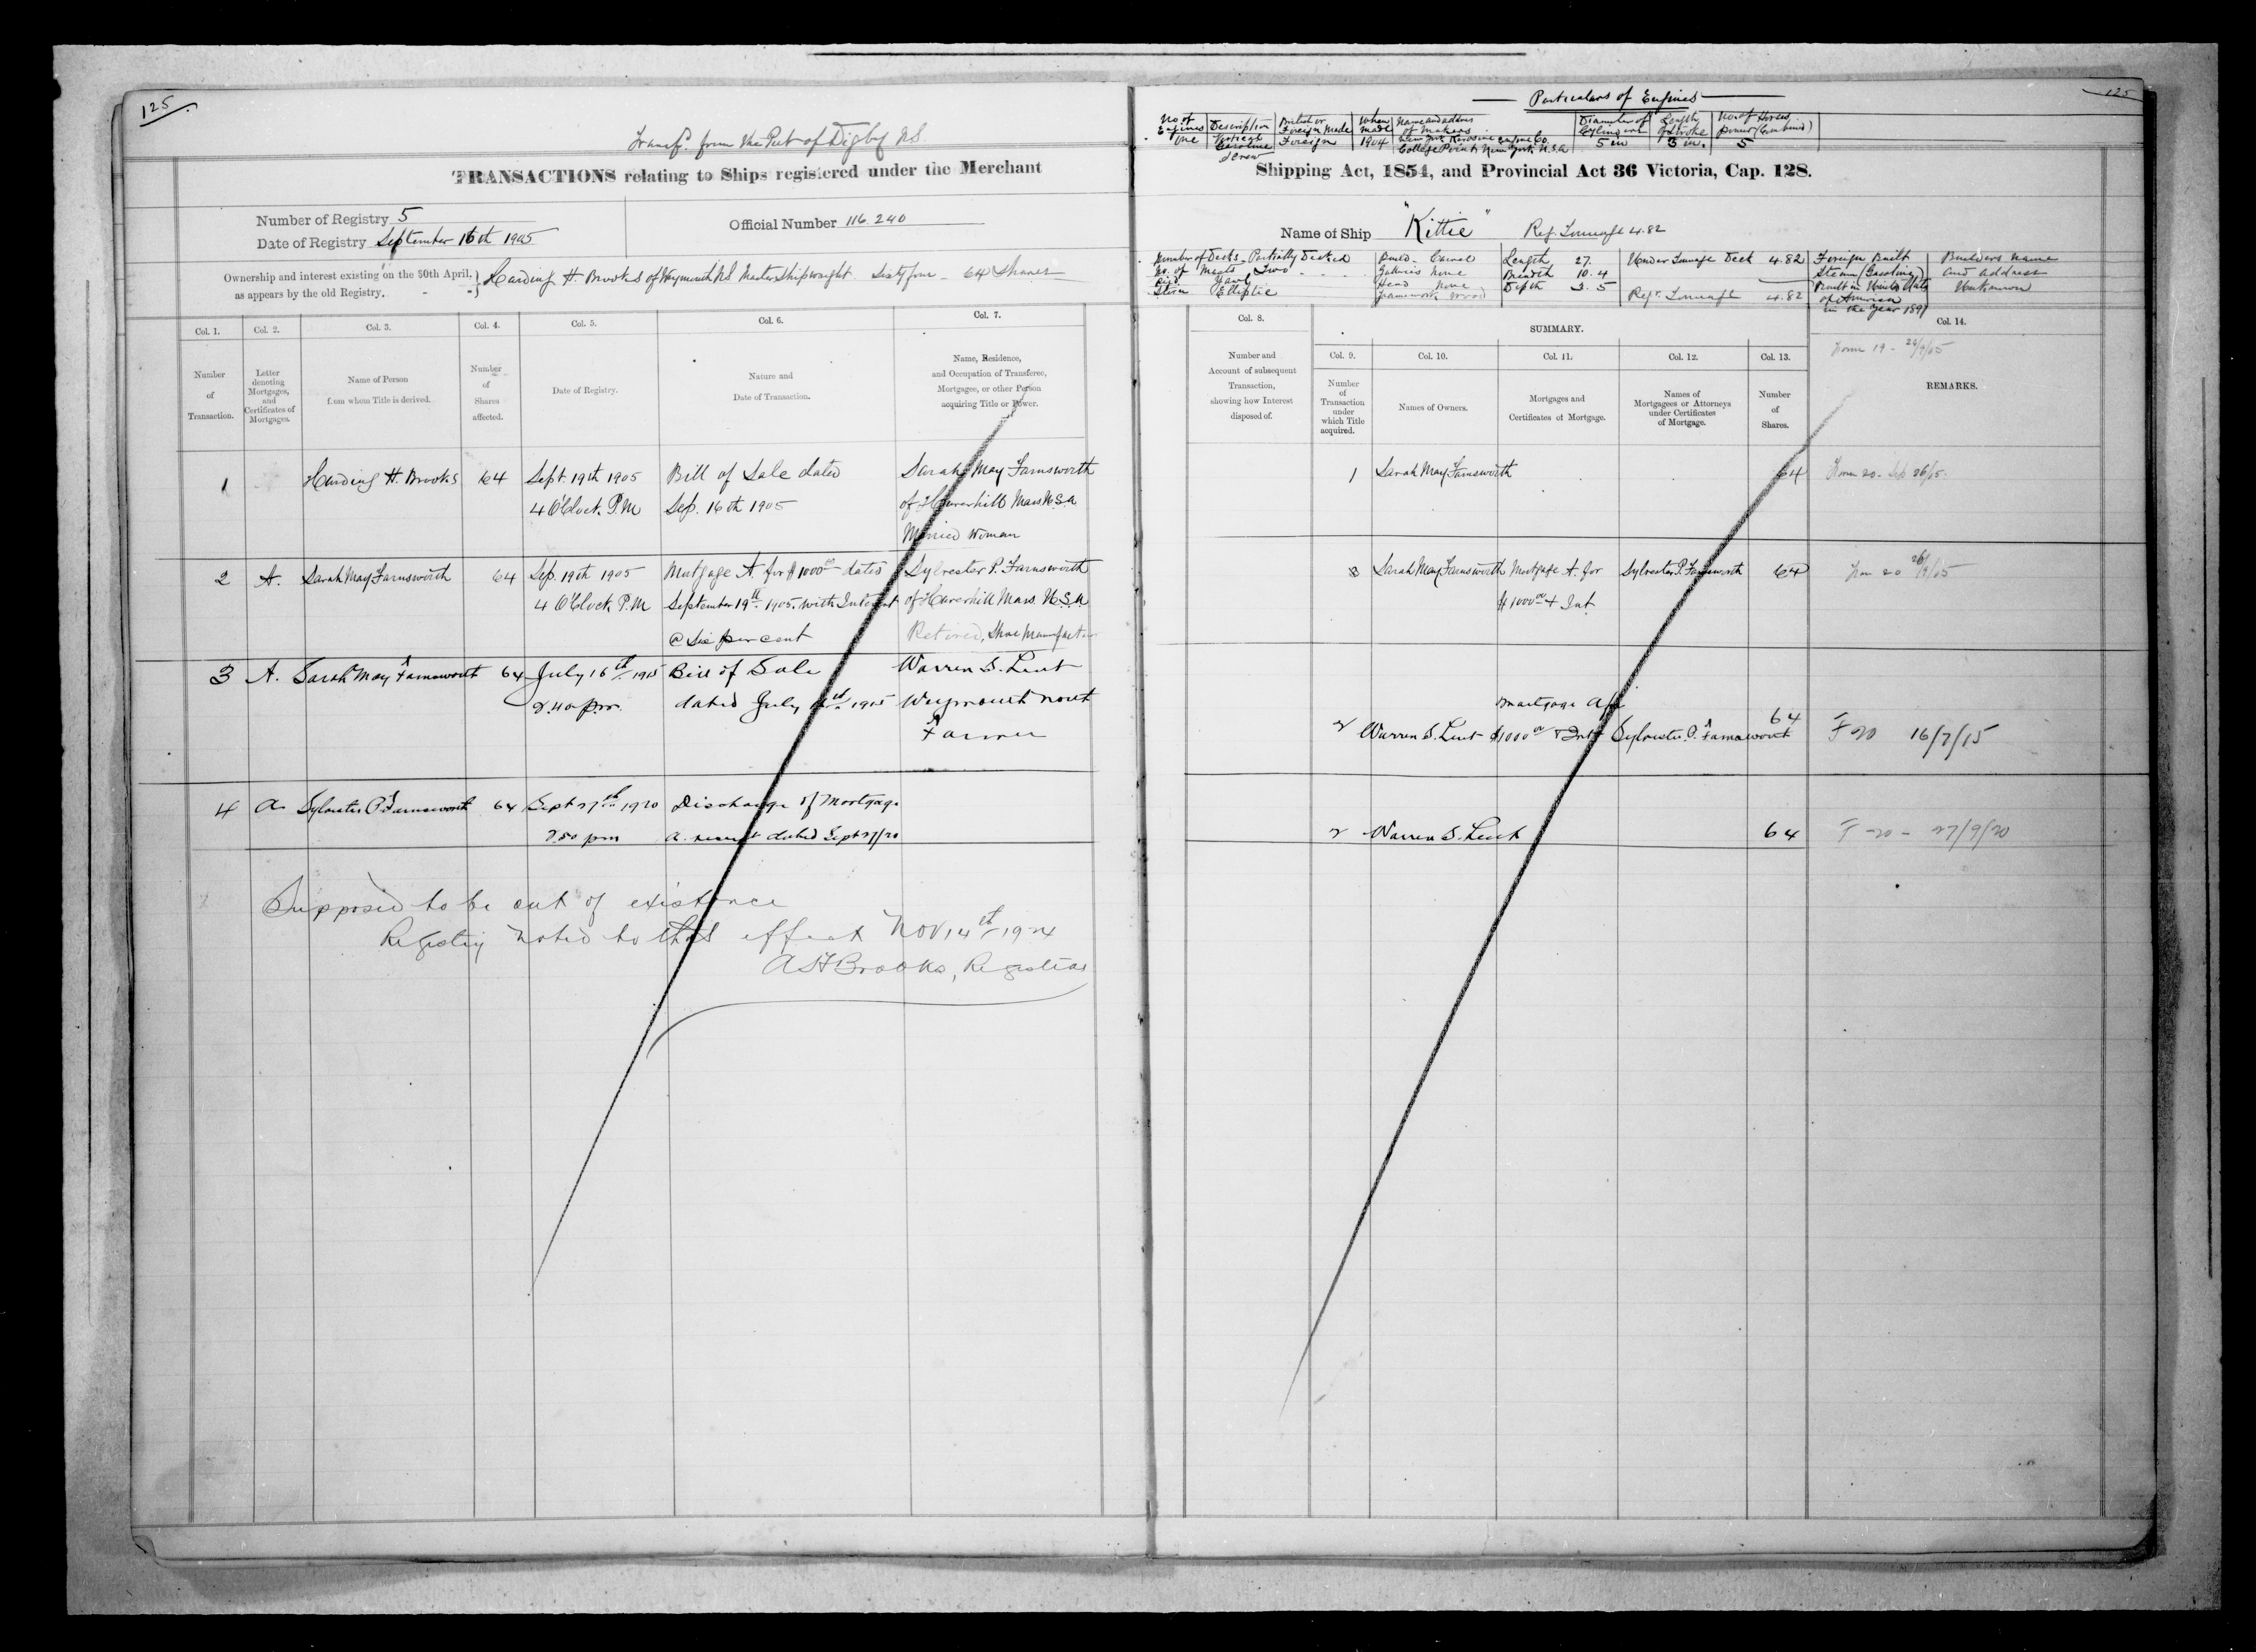 125
Transf. from the Port of Digby N.S.
TRANSACTIONS relating to Ships registered under the Merchant
Number of Registry 5
Date of Registry September 16th 1905
Official Number 116.240
Ownership and interest existing on the 30th April,
as appears by the old Registry.
Harding H. Brooks of Weymouth N.S. Master Shipwright. Sixty four - 64 Shares
Col. 1. Col. 2. Col. 3. Col. 4. Col. 5. Col. 6. Col. 7.
Number of Transaction.
Letter denoting Mortgages, and Certificates of Mortgages.
Name of Person from whom Title is derived.
Number of Shares affected.
Date of Registry.
Nature and Date of Transaction.
Name, Residence, and Occupation of Transferee, Mortgagee, or other Person acquiring Title or Power.
1 Harding H. Brooks 64 Sept. 19th 1905 Bill of Sale dated Sarah May Farnsworth
4 O'Clock P.M Sep. 16th 1905 of Haverhill Mass U.S.A
Married Woman
2 A. Sarah May Farnsworth 64 Sep. 19th 1905 Mortgage A. for $1000 00 dated Sylvester P. Farnsworth
4 O'Clock P.M September 19th 1905. with Interest of Haverhill Mass. U.S.A
@ Six per cent Retired, Shoe Manufacturer
3 A. Sarah May Farnsworth 64 July 16th 1915 Bill of Sale Warren S. Lent
2.40 p.m. dated July 1915 Weymouth North
Farmer
4 A Sylvester P. Farnsworth 64 Sept 27th 1920 Discharge of Mortgage
2.50 pm A. receipt dated Sept 27/20
Supposed to be out of existence
Registry noted to that effect Nov 14th 1924
A H Brooks, Registrar
125
Particulars of Engines
No of Engines Description British or Foreign Made When made Name and address of makers Diameter of Cylinders Length of Stroke No. of Horses power (Combined)
One Vertical Gasoline Screw Foreign 1904 New York Kerosine Engine Co. College Point, New York U.S.A 5 in 5 in. 5
Shipping Act, 1854, and Provincial Act 36 Victoria, Cap. 128.
Name of Ship "Kittie" Reg. Tonnage 4.82
Number of Decks - Partially Decked
No. of Masts Two
Rig'd Yawl
Stern Elliptic
Build - Carvel
Galleries None
Head None
Framework Wood
Length 27.
Breadth 10.4
Depth 3.5
Under Tonnage Deck 4.82
Regr. Tonnage 4.82
Foreign Built
Steam (Gasoline)
Built in United States
of America
in the year 1897
Builders name
and address
Unknown
Col. 8. SUMMARY. Col. 14.
Col. 9. Col. 10. Col. 11. Col. 12. Col. 13.
Number and Account of subsequent Transaction, showing how Interest disposed of.
Number of Transaction under which Title acquired.
Names of Owners.
Mortgages and Certificates of Mortgage.
Names of Mortgagees or Attorneys under Certificates of Mortgage.
Number of Shares.
REMARKS.
Form 19 - 26/9/05
1 Sarah May Farnsworth 64 Form 20 - Sep 26/5.
Sarah May Farnsworth Mortgage A. for Sylvester P. Farnsworth 64 Form 20 26/9/05
$1000 00 + Int.
mortgage A for
2 Warren S. Lent $1000 00 & Int Sylvester P. Farnsworth 64 F 20 16/7/15
2 Warren S. Lent 64 F - 20 - 27/9/20